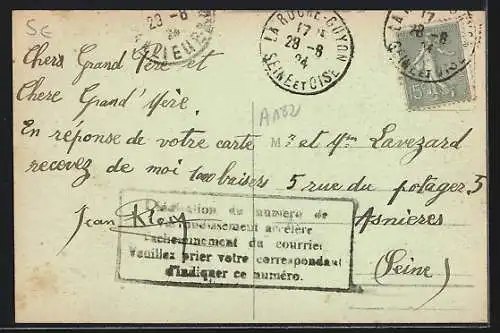 5E
28-8
24
LA ROCHE-GUYON
17
28-8
24
SEINE ET OISE
LA ROCHE
17
28-8
24
SEINE ET OISE
Chers Grand Père et
Chère Grand'Mère.
A1182
En réponse de votre carte
recevez de moi 1000 baisers
Jean
Mr et Mme Lavezard
5 rue du potager. 5
Asnieres
(Seine)
du numéro de
l'arrondissement accélère
l'acheminement du courrier
Veuillez prier votre correspondant
d'indiquer ce numéro.